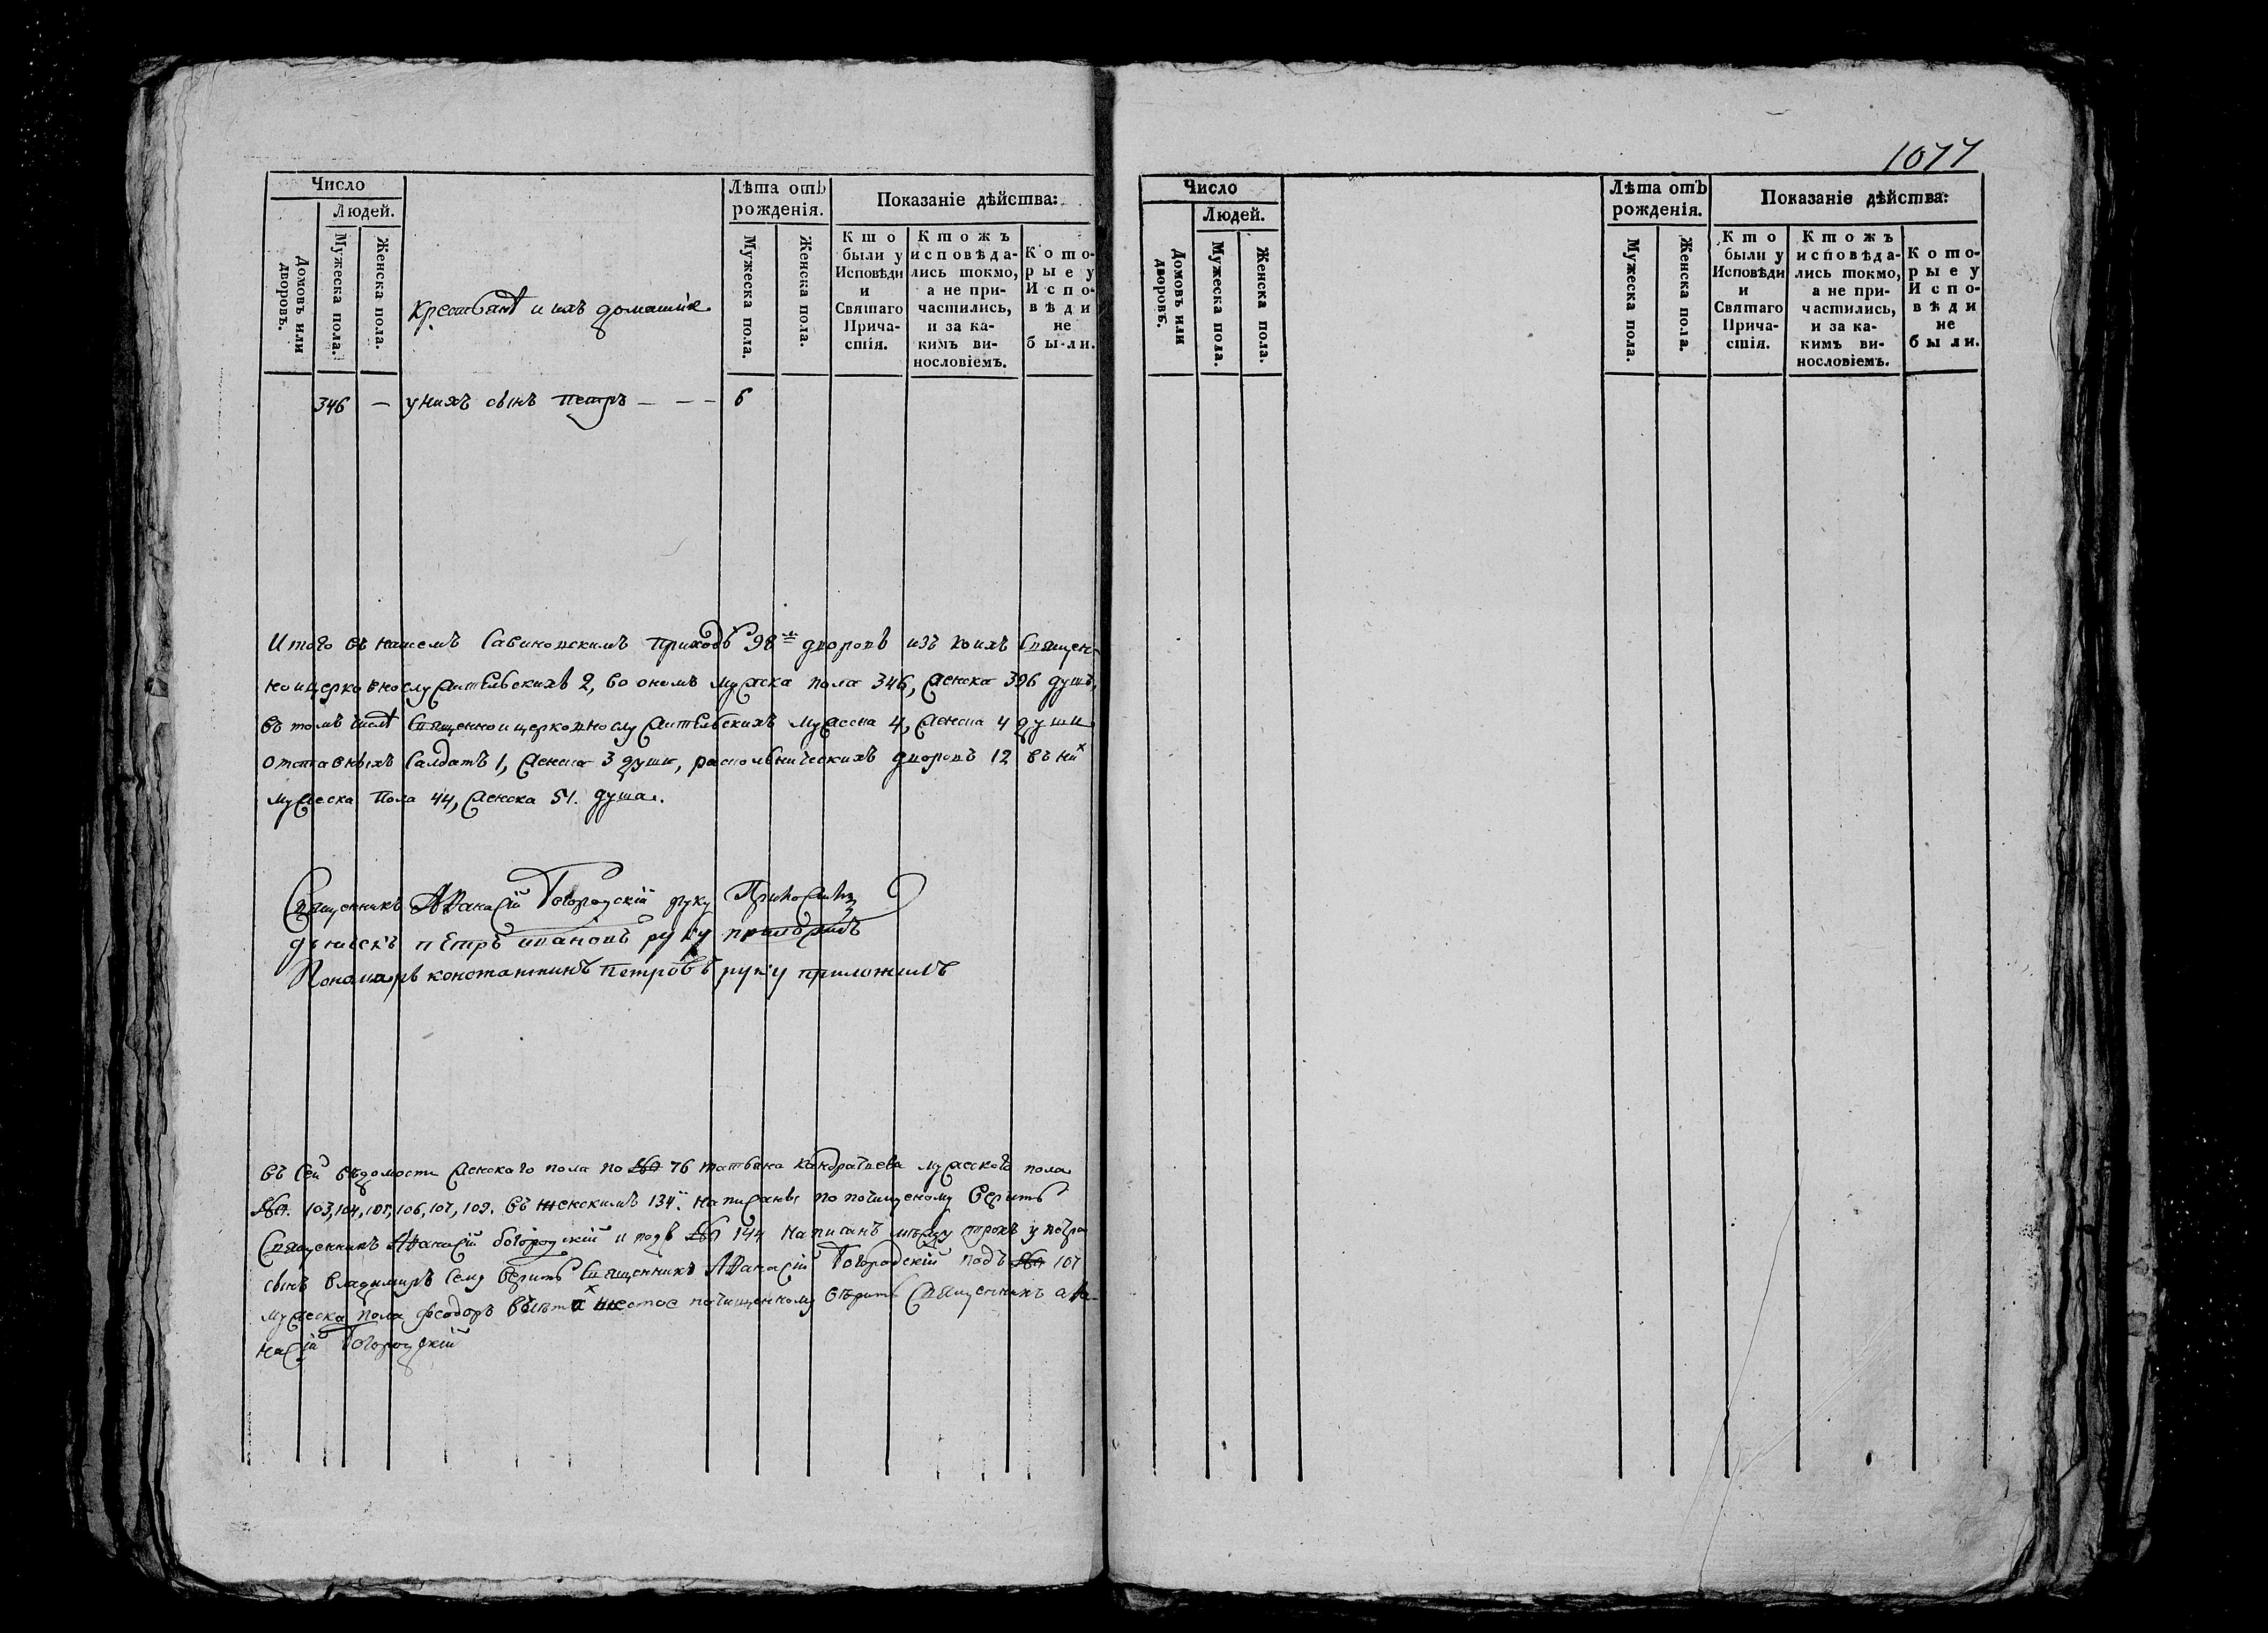 Число
Людей.
Домовъ или дворовъ.
Мужеска пола.
Женска пола.
Крестьянѣ и ихъ домашнія
Лѣта отъ
рожденія.
Мужеска пола.
Женска пола.
Показаніе дѣйства:
Кто
были у
Исповѣди
и
Святаго
Прича-
стія.
Ктожъ
исповѣда-
лись токмо,
а не при-
частились,
и за ка-
кимъ ви-
нословіемъ.
Кото-
рые у
Испо-
вѣди
не
были.
346 — у нихъ сынъ Петръ — — — 6
Итого въ нашемъ Савиновскимъ приходѣ 98 дворовъ изъ коихъ Священ-
ноицерковнослужительскихъ 2, во ономъ мужеска пола 346, женска 396 душъ,
въ томъ числѣ Священноицерковнослужительскихъ мужеска 4, женска 4 души
отставныхъ Салдатъ 1, женска 3 души, раскольническихъ дворовъ 12 въ них
мужеска пола 44, женска 51. душа.
Священникъ Аѳанасій Богородскій руку Приложилъ
дьячекъ Петръ Ивановъ руку приложилъ
Пономарь константинъ Петровъ руку приложилъ
Въ Сей вѣдомости женскаго пола по № 76 татьяна кандратьева мужскаго пола
№ 103, 104, 105, 106, 107, 109. Съ женскимъ 134 написаны по почищеному Вѣрить
Священникъ Аѳанасій богородскій и подъ № 144 написанъ между строкъ у петра
сынъ владимиръ Сему вѣрить Священникъ Аѳанасій Богородскій подъ № 107
мужеска пола феодоръ шестое почищенному вѣрить Священникъ аѳа-
насій Богородскій
1077
Число
Людей.
Домовъ или дворовъ.
Мужеска пола.
Женска пола.
Лѣта отъ
рожденія.
Мужеска пола.
Женска пола.
Показаніе дѣйства:
Кто
были у
Исповѣди
и
Святаго
Прича-
стія.
Ктожъ
исповѣда-
лись токмо,
а не при-
частились,
и за ка-
кимъ ви-
нословіемъ.
Кото-
рые у
Испо-
вѣди
не
были.